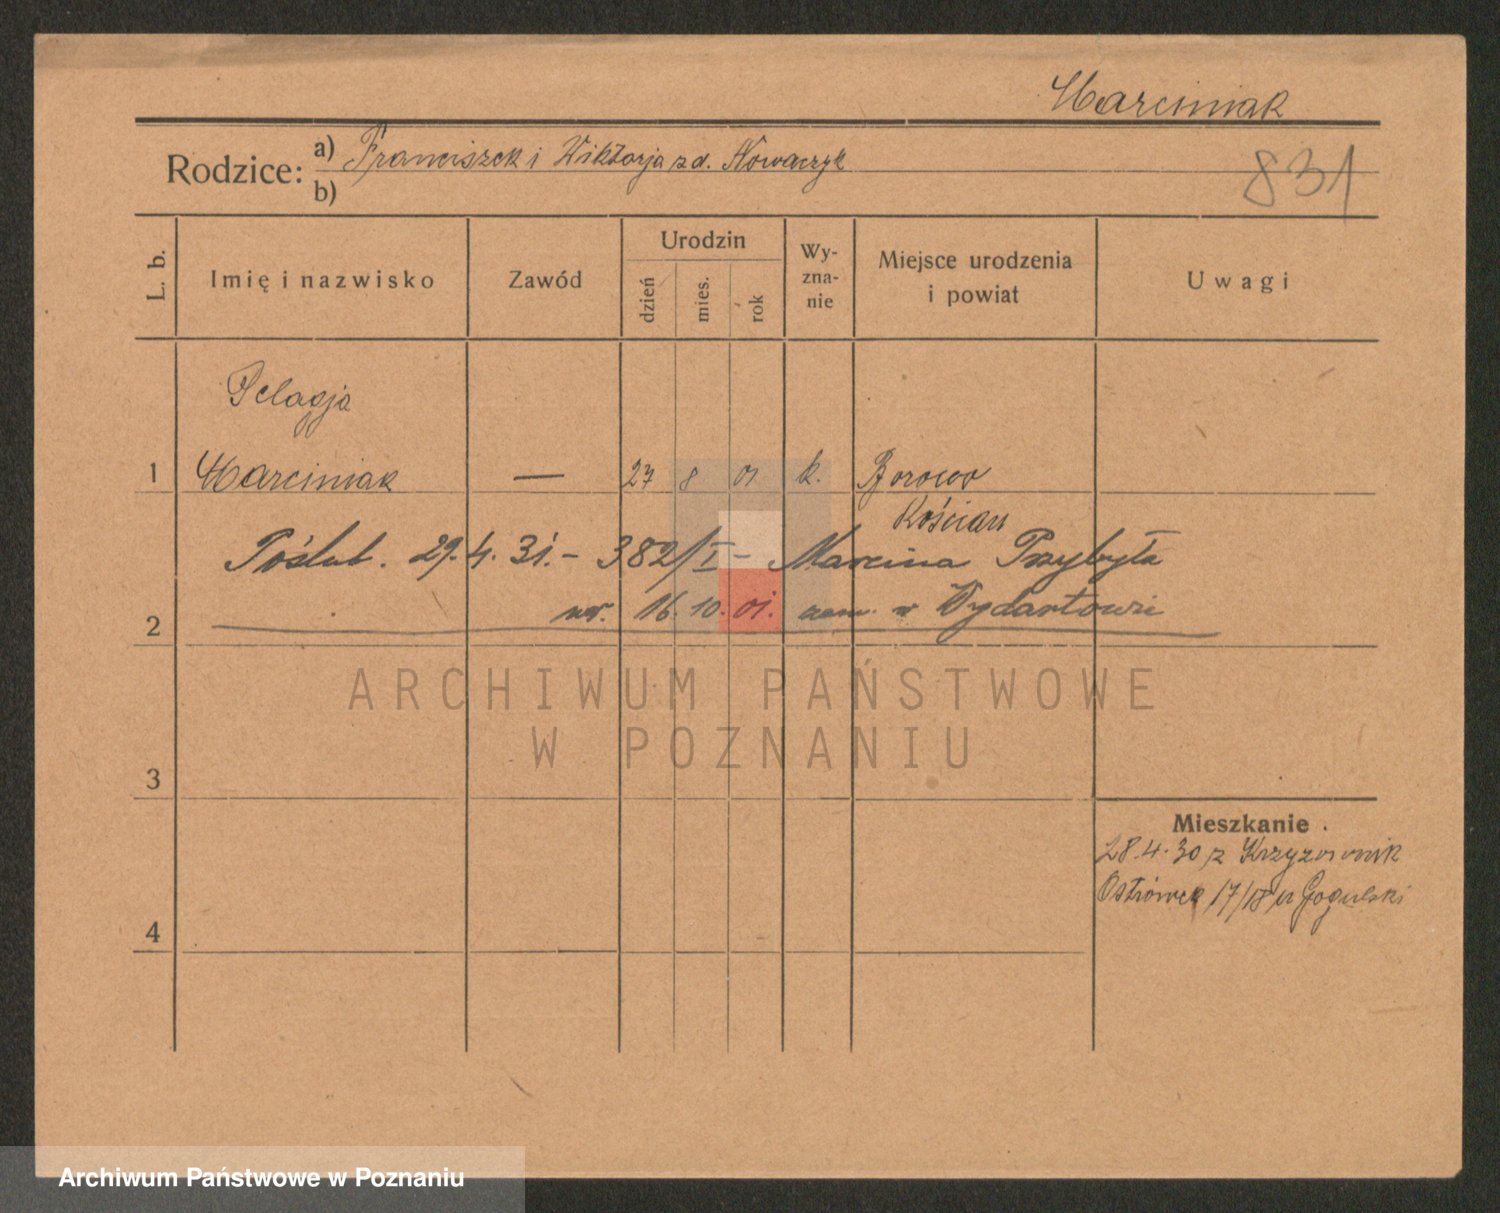 Marciniak
Rodzice: a) Franciszek i Wiktorja z d. Nowaczyk
b)
831
L. b.
Imię i nazwisko
Zawód
Urodzin
dzień
mies.
rok
Wy-
zna-
nie
Miejsce urodzenia
i powiat
Uwagi
Pelagja
1 Marciniak — 27 8 01 k. Borowo
Kościan
Poślub. 29.4.31. – 382/I – Marcina Przybyła
2 ur. 16.10.01. zam. w Wydartowie
ARCHIWUM PAŃSTWOWE
W POZNANIU
3
Mieszkanie
28.4.30 z Krzyżownik
Ostrówek 17/18 u Gogulski
4
Archiwum Państwowe w Poznaniu